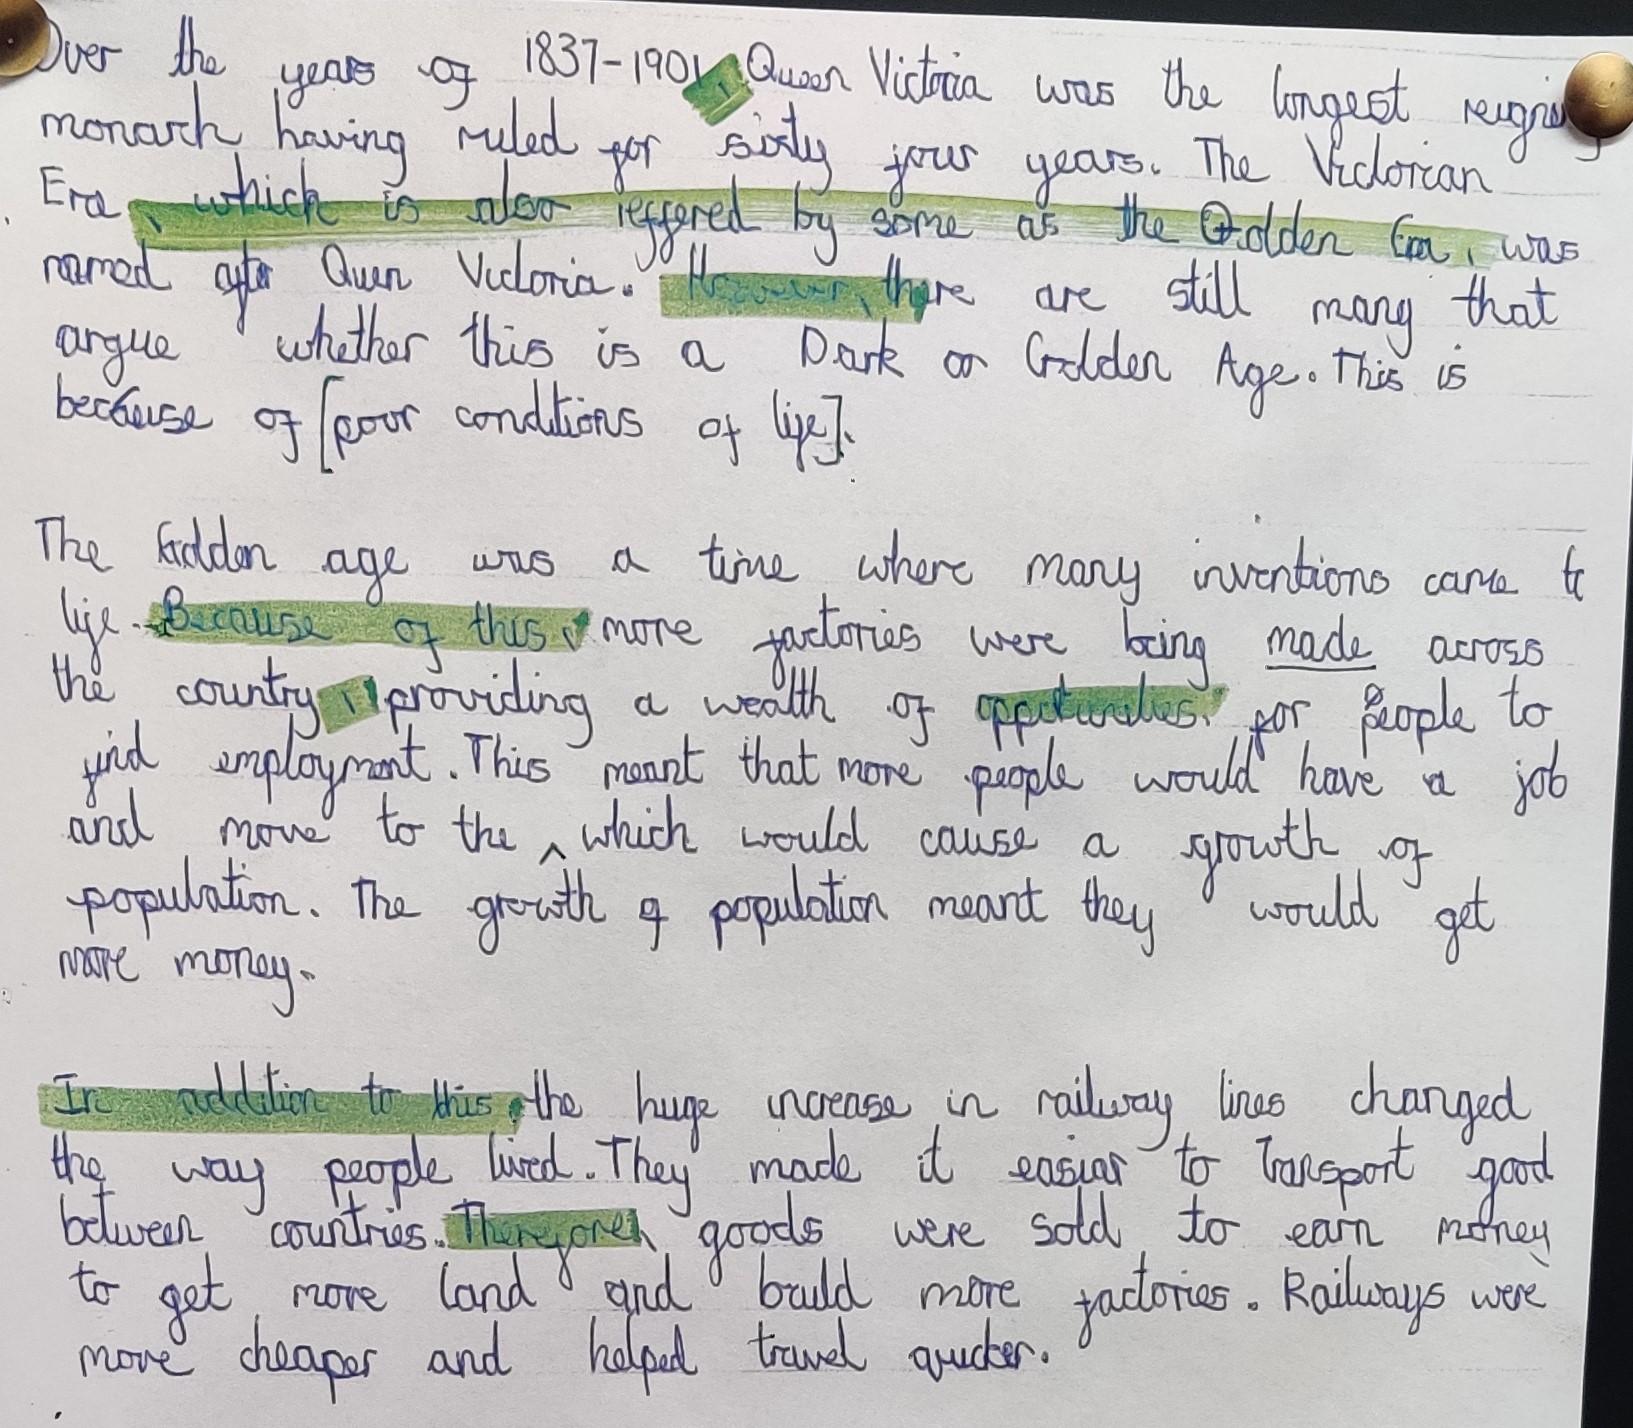 Over the years of 1837-1901, Queen Victoria was the longest reigni
monarch having ruled for sixty four years. The Victorian
Era, which is also reffered by some as the Golden Era, was
named after Queen Victoria. However, there are still many that
argue whether this is a Dark or Golden Age. This is
because of [poor conditions of life].
The Golden age was a time where many inventions came to
life. Because of this, more factories were being made across
the country, providing a wealth of oppotunities. for people to
find employment. This meant that more people would have a job
and move to the ^ which would cause a growth of
population. The growth of population meant they would get
more money.
In addition to this, the huge increase in railway lines changed
the way people lived. They made it easier to transport good
between countries. Therefore, goods were sold to earn money
to get more land and build more factories. Railways were
more cheaper and helped travel quicker.